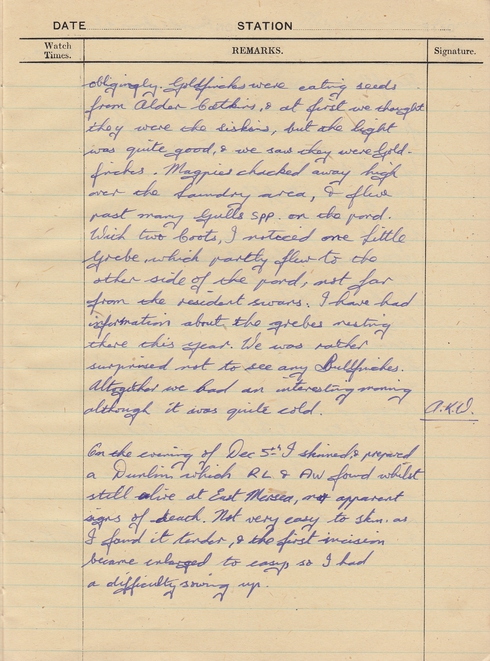 DATE STATION
Watch Times. REMARKS. Signature.
obligingly. Goldfinches were eating seeds
from Alder Catkins, & at first we thought
they were the siskins, but the light
was quite good, & we saw they were Gold-
finches. Magpies chacked away high
over the laundry area, & flew
past many Gulls spp. on the pond.
With two Coots, I noticed one Little
Grebe, which partly flew to the
other side of the pond, not far
from the resident swans. I have had
information about the grebes nesting
there this year. We was rather
surprised not to see any Bullfinches.
Altogether we had an interesting morning
although it was quite cold. A.K.
On the evening of Dec 5th I skinned & prepared
a Dunlin which RL & AW found whilst
still alive at East Mersea, apparent
signs of death. Not very easy to skin. as
I found it tender, & the first incision
became enlarged to easy, so I had
a difficulty sowing up.